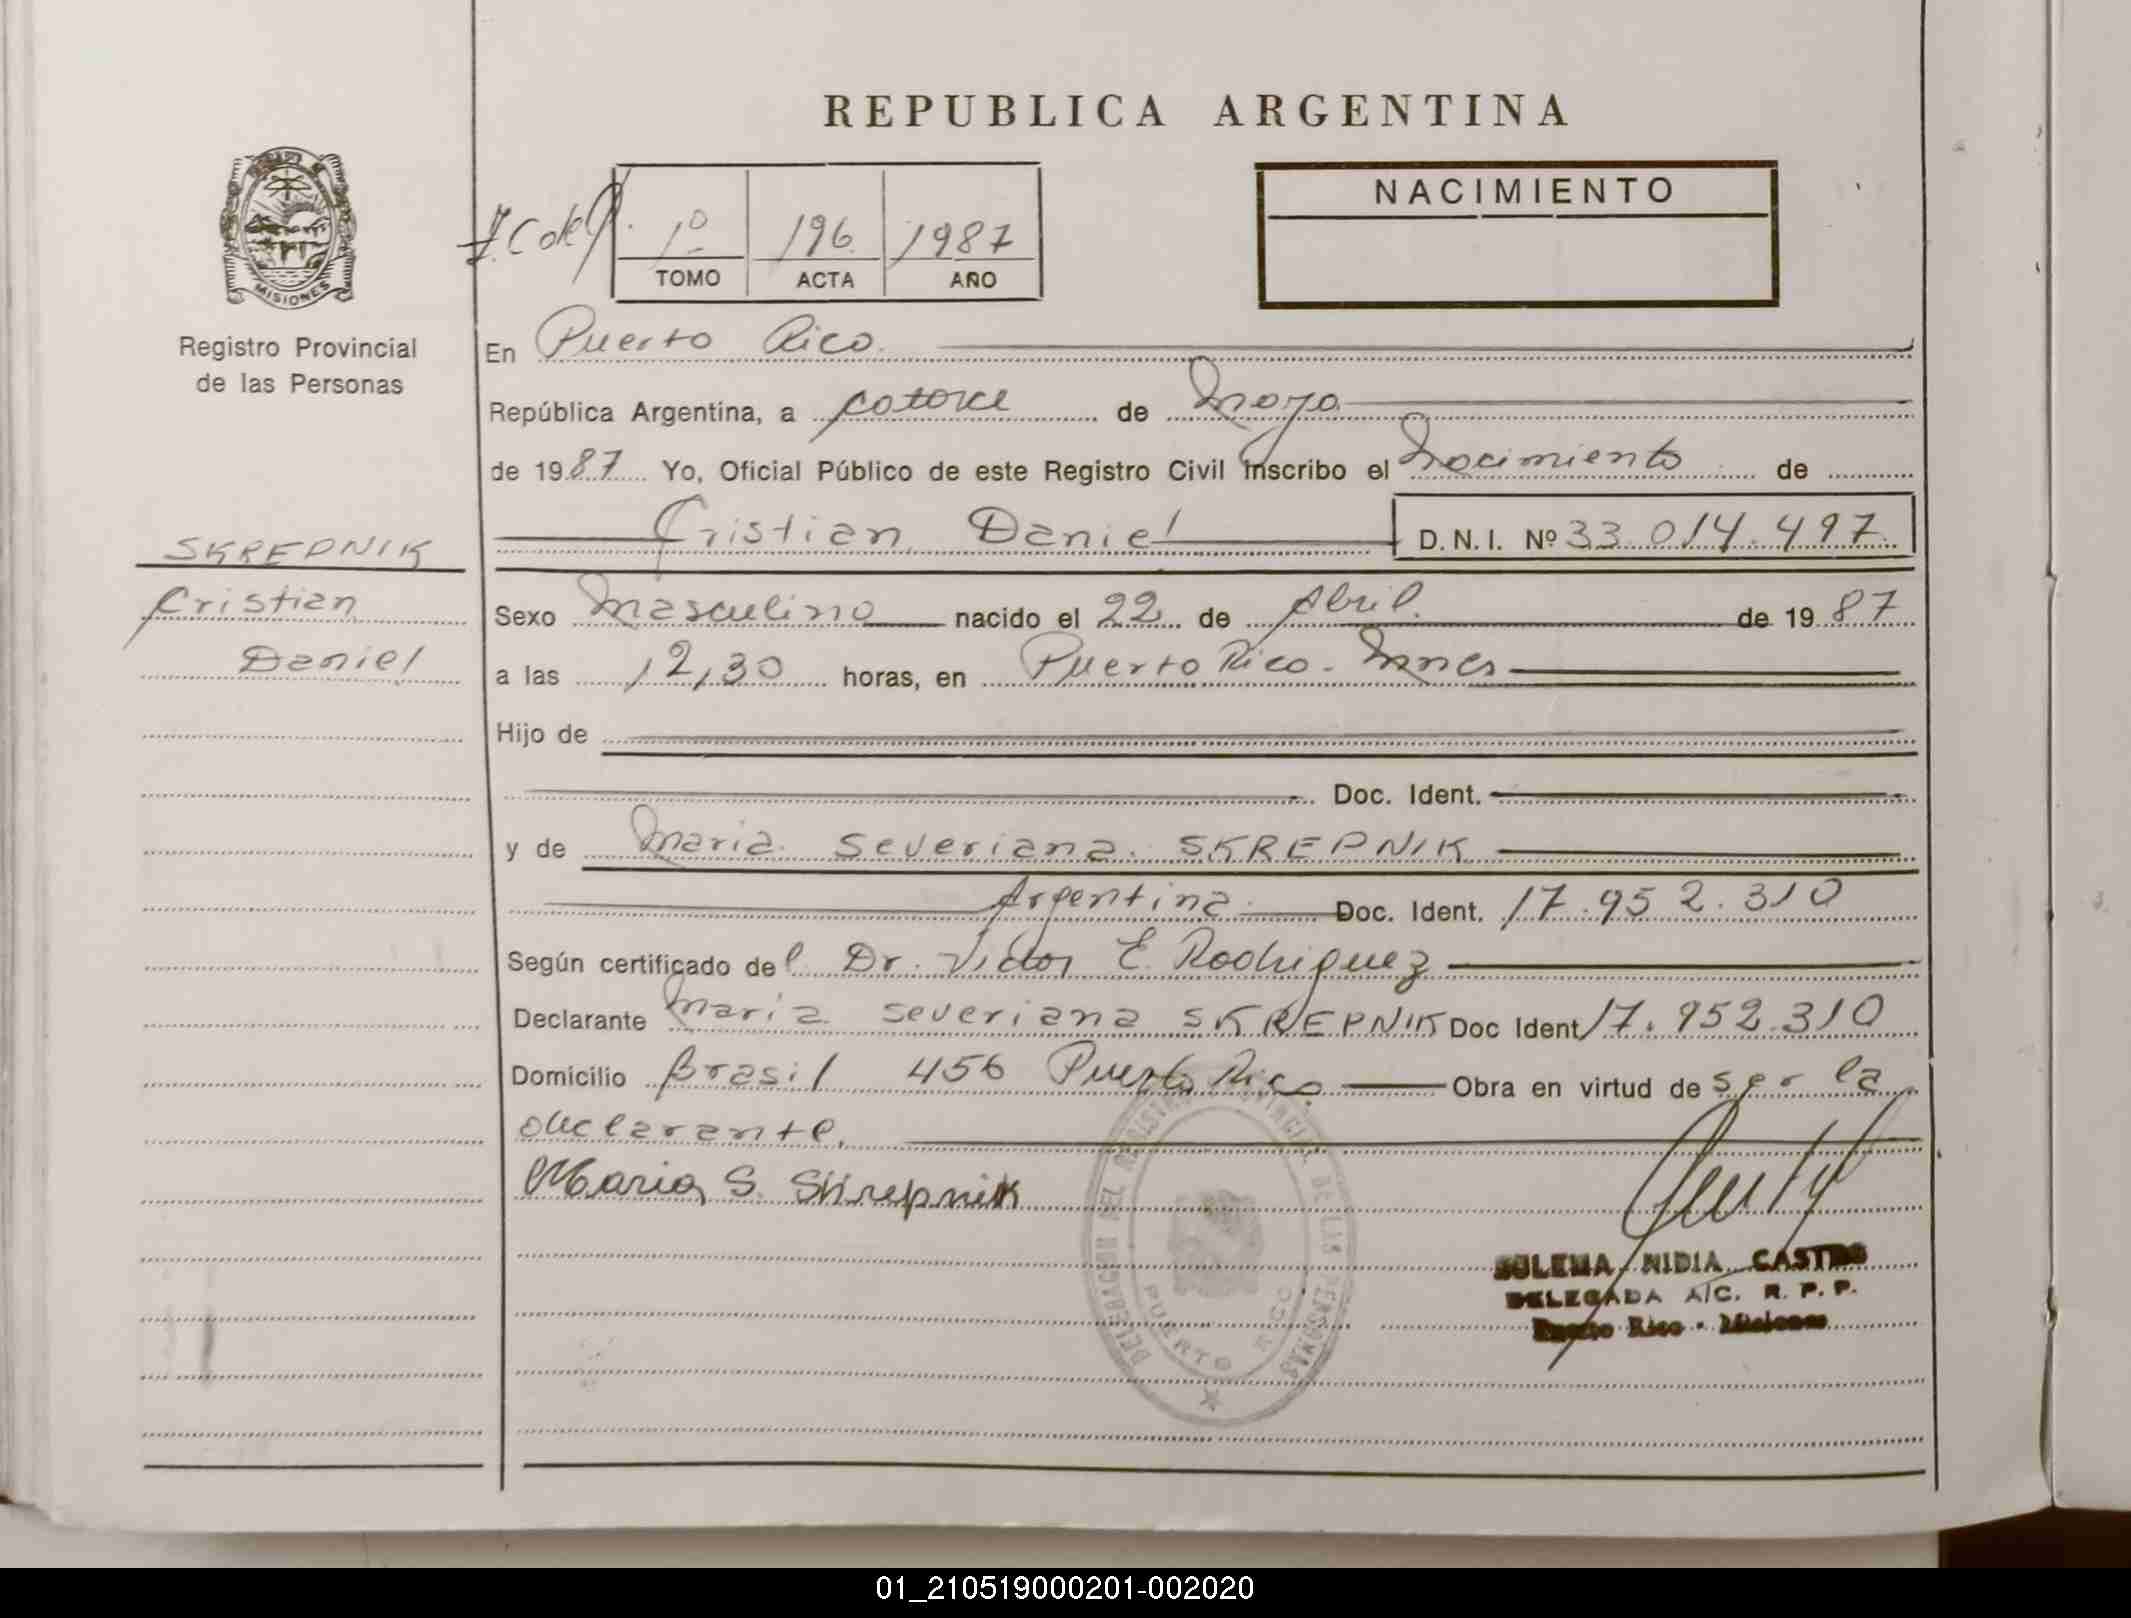 REPUBLICA ARGENTINA
NACIMIENTO
1º 196 1987
TOMO ACTA AÑO
MISIONES
Registro Provincial
de las Personas
En Puerto Rico.
República Argentina, a catorce de Mayo
de 1987 Yo, Oficial Público de este Registro Civil inscribo el Nacimiento de
Cristian Daniel D.N.I. Nº 33.014.497
SKREPNIK
Cristian
Daniel
Sexo Masculino nacido el 22 de Abril. de 1987
a las 12,30 horas, en Puerto Rico - Mnes
Hijo de
Doc. Ident.
y de Maria Severiana SKREPNIK
Argentina Doc. Ident. 17.952.310
Según certificado del Dr. Victor E. Rodriguez
Declarante Maria Severiana SKREPNIK Doc Ident 17.952.310
Domicilio Brasil 456 Puerto Rico Obra en virtud de ser la
declarante.
Maria S. Skrepnik
DELEGACION DEL REGISTRO PROVINCIAL DE LAS PERSONAS
PUERTO RICO
SULEMA NIDIA CASTRO
DELEGADA A/C. R. P. P.
Puerto Rico - Misiones
01_210519000201-002020